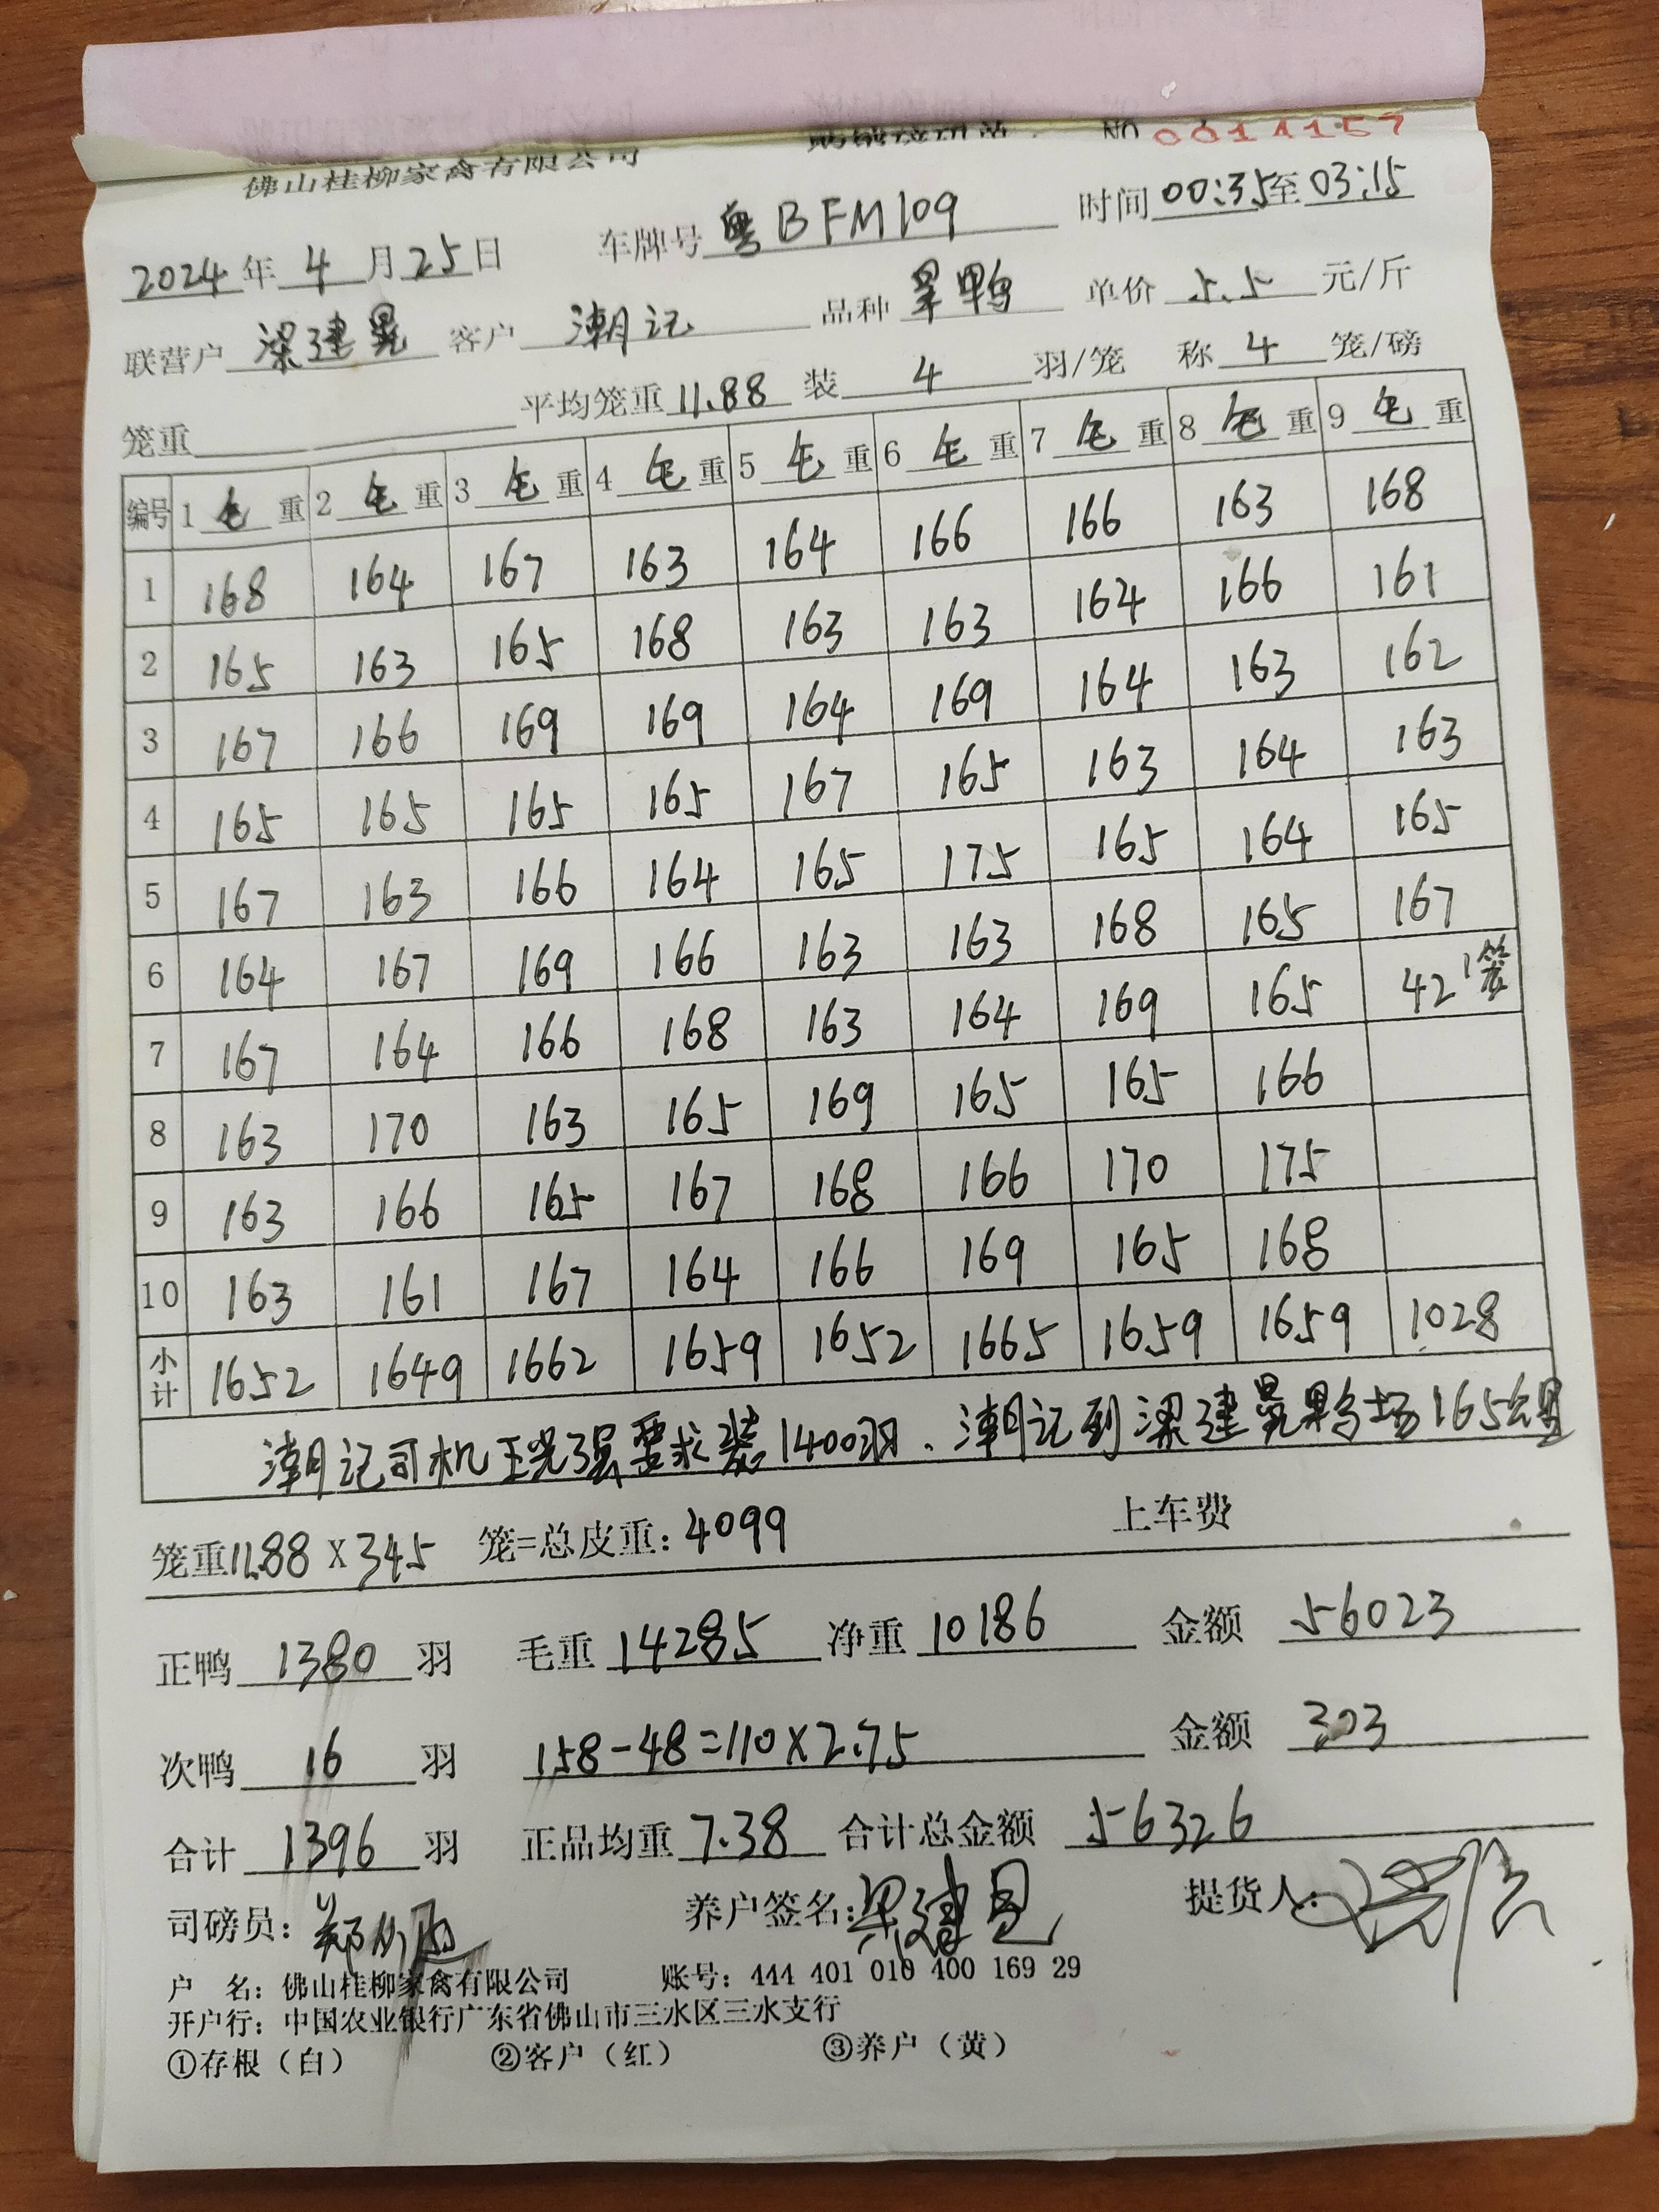 佛山桂柳家禽有限公司 NO 0014157
2024 年 4 月 25 日 车牌号 粤BFM109 时间 00:35 至 03:15
联营户 梁建晃 客户 潮记 品种 旱鸭 单价 5.5 元/斤
笼重 平均笼重 11.88 装 4 羽/笼 称 4 笼/磅
编号 1 毛 重 2 毛 重 3 毛 重 4 毛 重 5 毛 重 6 毛 重 7 毛 重 8 毛 重 9 毛 重
1 168 164 167 163 164 166 166 163 168
2 165 163 165 168 163 163 164 166 161
3 167 166 169 169 164 169 164 163 162
4 165 165 165 165 167 165 163 164 163
5 167 163 166 164 165 175 165 164 165
6 164 167 169 166 163 163 168 165 167
7 167 164 166 168 163 164 169 165 42 1笼
8 163 170 163 165 169 165 165 166
9 163 166 165 167 168 166 170 175
10 163 161 167 164 166 169 165 168
小计 1652 1649 1662 1659 1652 1665 1659 1659 1028
潮记司机王光强要求装1400羽、潮记到梁建晃鸭场165公里
笼重 11.88 X 345 笼=总皮重: 4099 上车费
正鸭 1380 羽 毛重 14285 净重 10186 金额 56023
次鸭 16 羽 158-48=110×2.75 金额 303
合计 1396 羽 正品均重 7.38 合计总金额 56326
司磅员: 养户签名: 梁建晃 提货人:
户 名: 佛山桂柳家禽有限公司 账号: 444 401 010 400 169 29
开户行: 中国农业银行广东省佛山市三水区三水支行
①存根（白） ②客户（红） ③养户（黄）